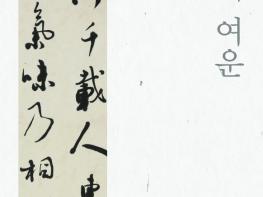 여운
千載人
氣味乃相